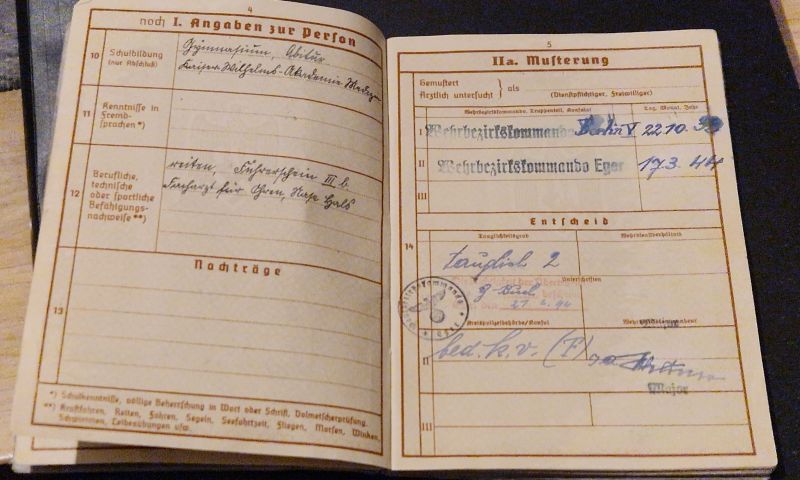 4
noch I. Angaben zur Person
10 Schulbildung (nur Abschluß)
Gymnasium, Abitur
Kaiser-Wilhelms-Akademie
11 Kenntnisse in Fremdsprachen *)
12 Berufliche, technische oder sportliche Befähigungsnachweise **)
reiten, Führerschein III b.
Facharzt für Ohren, Nase Hals
Nachträge
13
*) Schulkenntnisse, völlige Beherrschung in Wort oder Schrift, Dolmetscherprüfung.
**) Kraftfahren, Reiten, Fahren, Segeln, Seefahrtzeit, Fliegen, Morsen, Winken,
Schwimmen, Leibesübungen usw.
5
IIa. Musterung
Gemustert
Ärztlich untersucht } als
(Dienstpflichtiger, Freiwilliger)
Wehrbezirkskommando, Truppenteil, Konsulat
Tag, Monat, Jahr
I Wehrbezirkskommando Berlin V 22.10.
II Wehrbezirkskommando Eger 17.3.44
III
Entscheid
14
Tauglichkeitsgrad
Wehrdienstverhältnis
tauglich 2
Unterschriften
Kreispolizeibehörde/Konsul
Major
II bed. k.v. (F)
Major
III